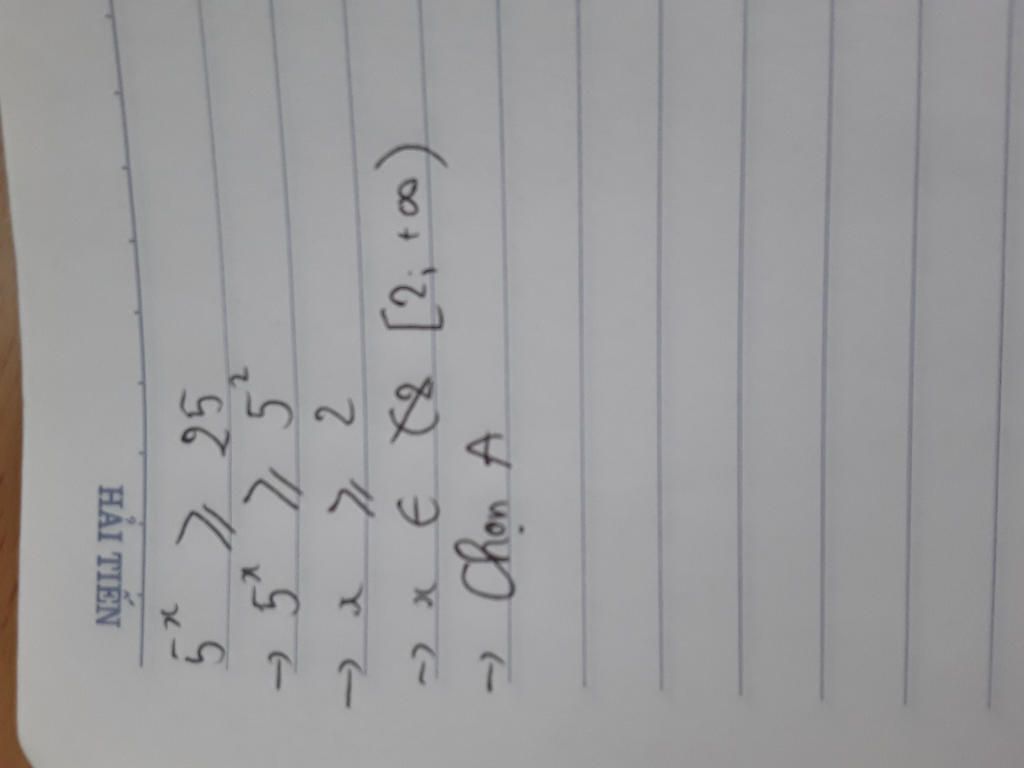 HẢI TIẾN
5ˣ ⩾ 25
→ 5ˣ ⩾ 5²
→ x ⩾ 2
→ x ∈ [2; +∞)
→ Chọn A